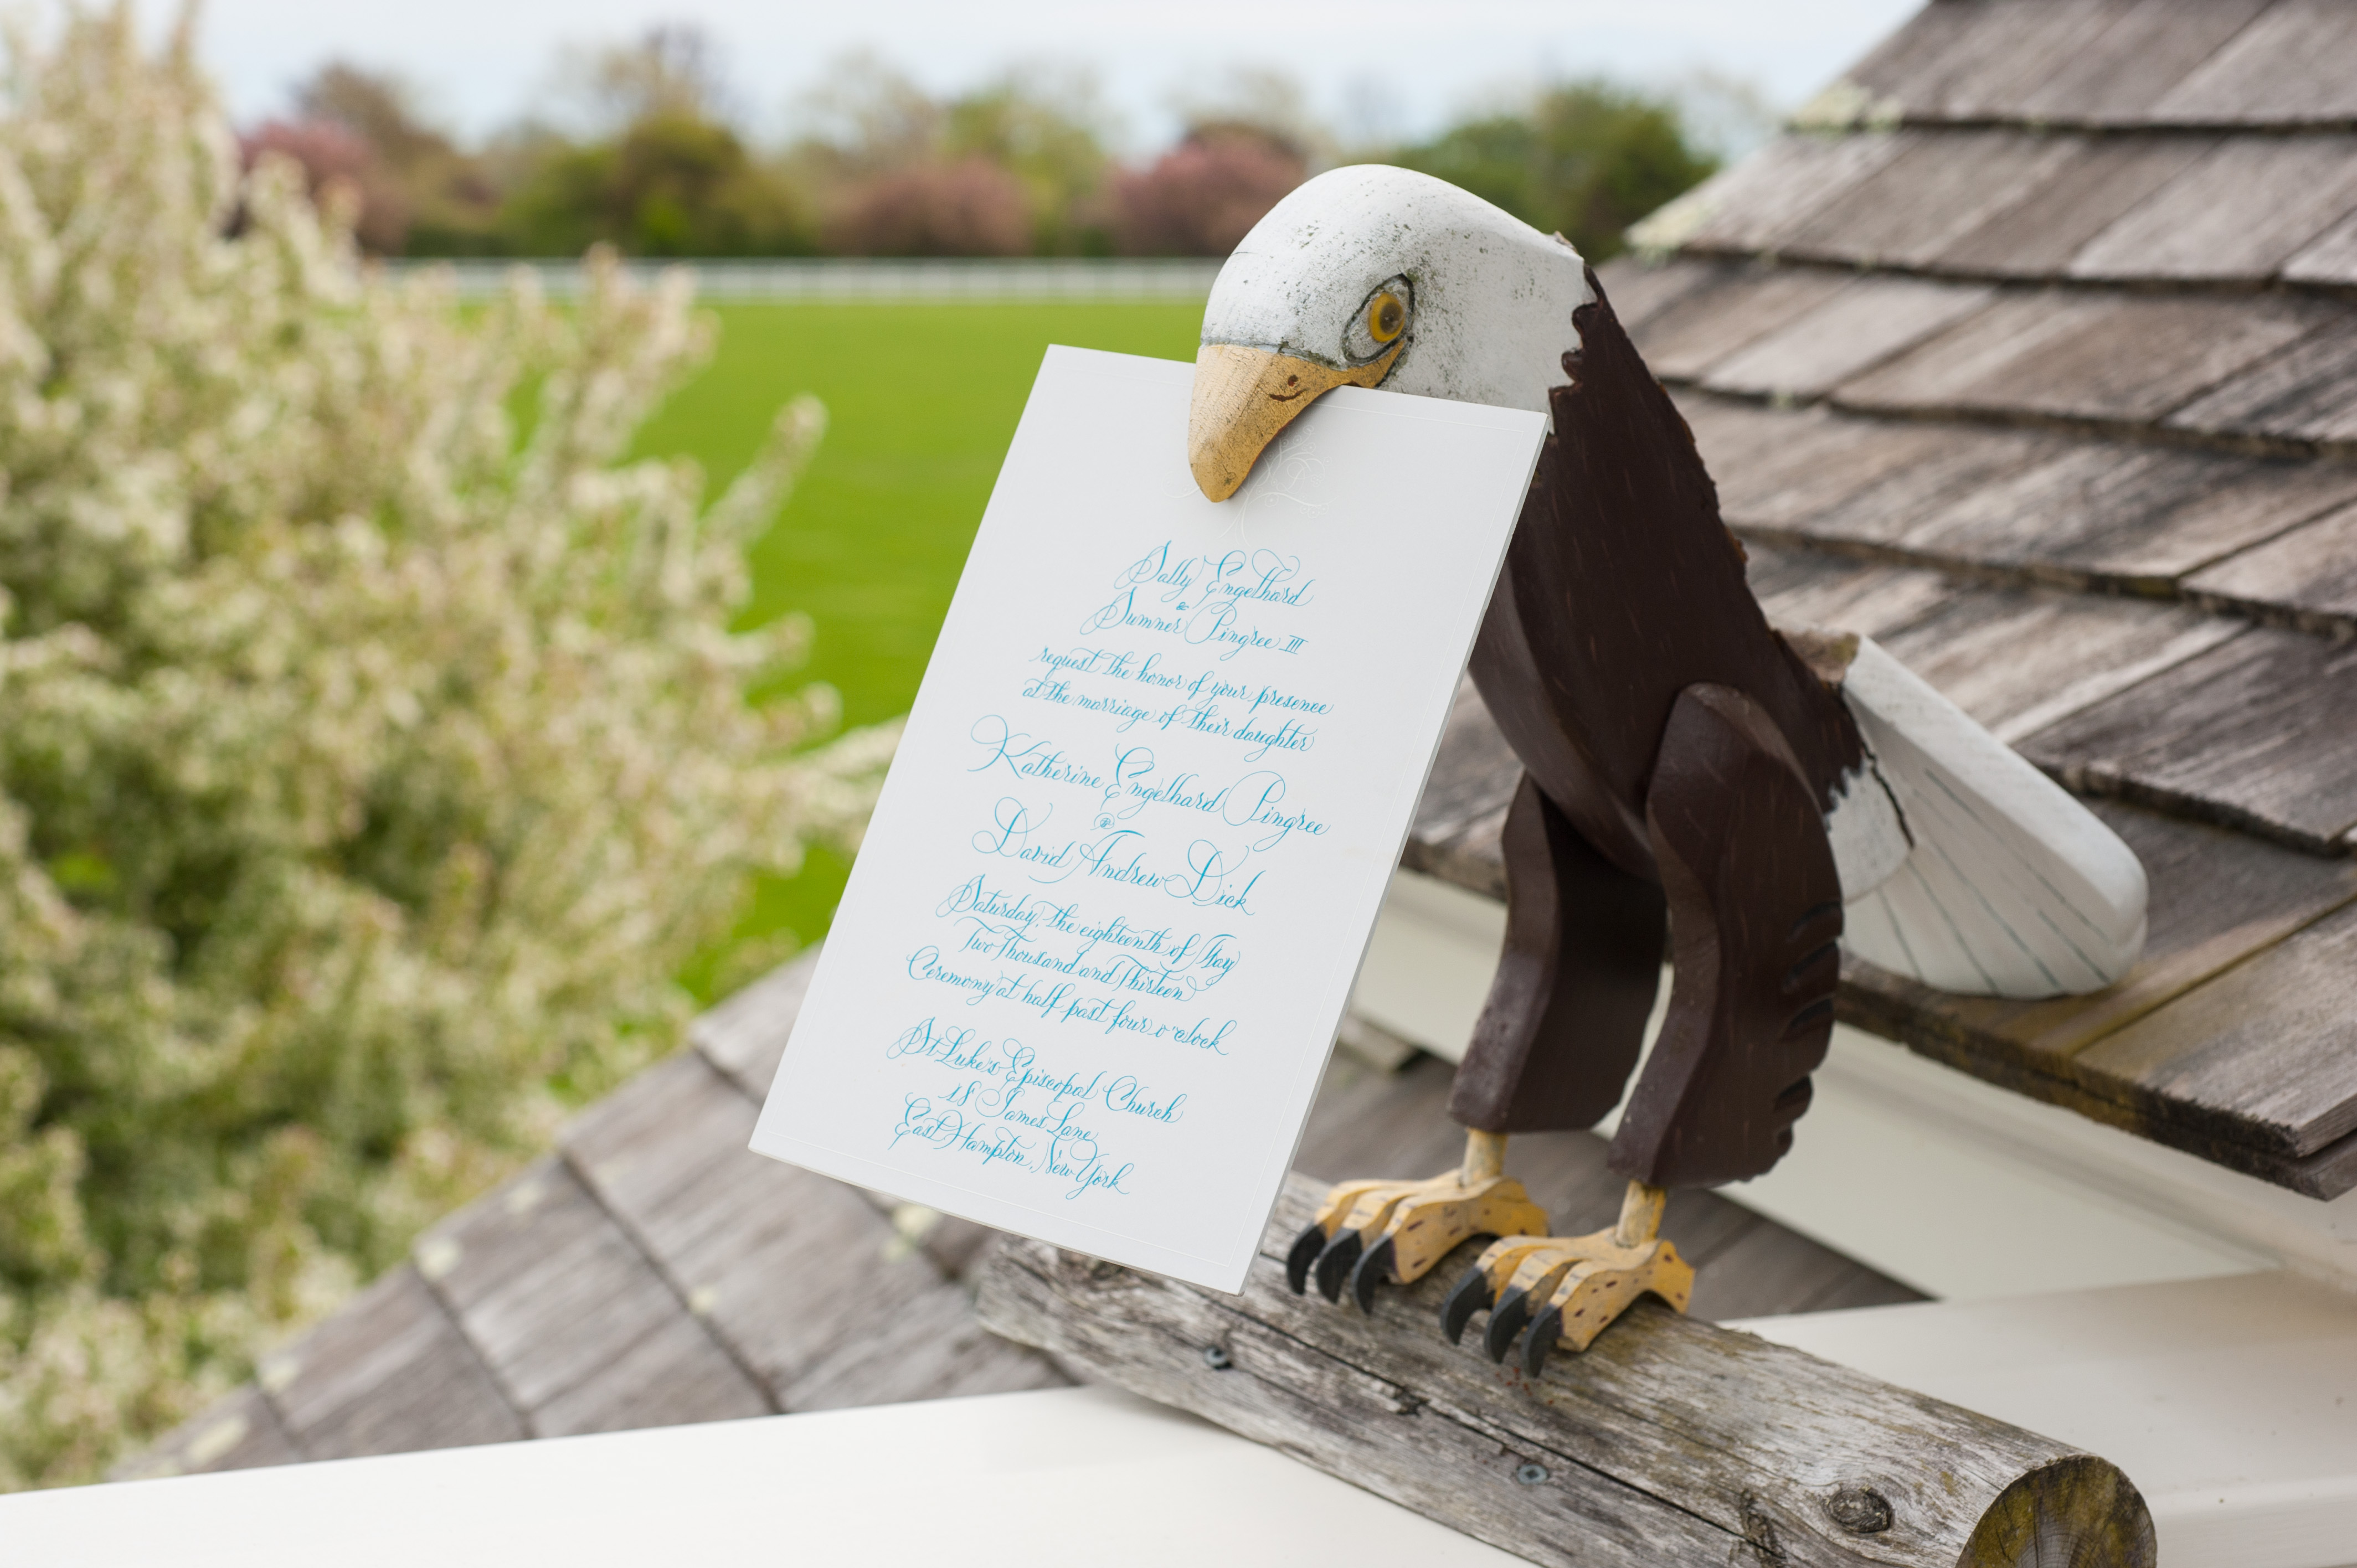 Sally Engelhard
&
Sumner Pingree III
request the honor of your presence
at the marriage of their daughter
Katherine Engelhard Pingree
&
David Andrew Dick
Saturday, the eighteenth of May
Two Thousand and Thirteen
Ceremony at half past four o'clock
St. Luke's Episcopal Church
18 James Lane
East Hampton, New York